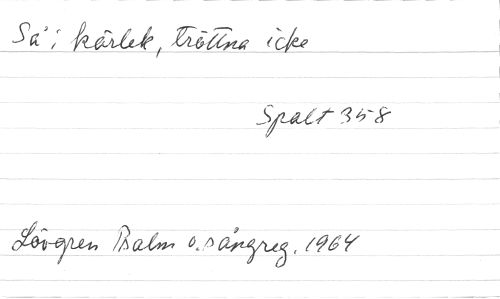 Så i kärlek, tröttna icke
Spalt 358
Lövgren Psalm o. sångreg. 1964